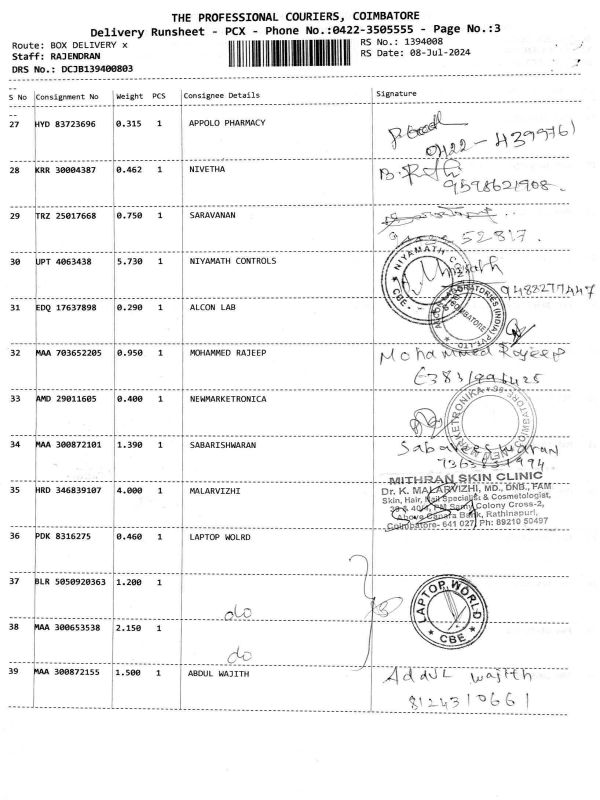 THE PROFESSIONAL COURIERS, COIMBATORE
Delivery Runsheet - PCX - Phone No.:0422-3505555 - Page No.:3
Route: BOX DELIVERY x
RS No.: 1394008
Staff: RAJENDRAN
RS Date: 08-Jul-2024
DRS No.: DCJB139400803
S No Consignment No Weight PCS Consignee Details Signature
27 HYD 83723696 0.315 1 APPOLO PHARMACY
0422-4399761
28 KRR 30004387 0.462 1 NIVETHA
9598621908.
29 TRZ 25017668 0.750 1 SARAVANAN
52817.
30 UPT 4063438 5.730 1 NIYAMATH CONTROLS
NIYAMATH CBE
9488277447
31 EDQ 17637898 0.290 1 ALCON LAB
LABORATORIES (INDIA) COIMBATORE
32 MAA 703652205 0.950 1 MOHAMMED RAJEEP
Mohammed Rajeep
33 AMD 29011605 0.400 1 NEWMARKETRONICA
34 MAA 300872101 1.390 1 SABARISHWARAN
35 HRD 346839107 4.000 1 MALARVIZHI
MITHRAN SKIN CLINIC
Dr. K. MALARVIZHI, MD., DNB., FAM
Skin, Hair, Nail Specialist & Cosmetologist,
Colony Cross-2,
Above Canara Bank, Rathinapuri,
Coimbatore- 641 027, Ph: 89210 50497
36 PDK 8316275 0.460 1 LAPTOP WOLRD
37 BLR 5050920363 1.200 1
do
LAPTOP WORLD CBE
38 MAA 300653538 2.150 1
do
39 MAA 300872155 1.500 1 ABDUL WAJITH
Addul wajith
8124310661